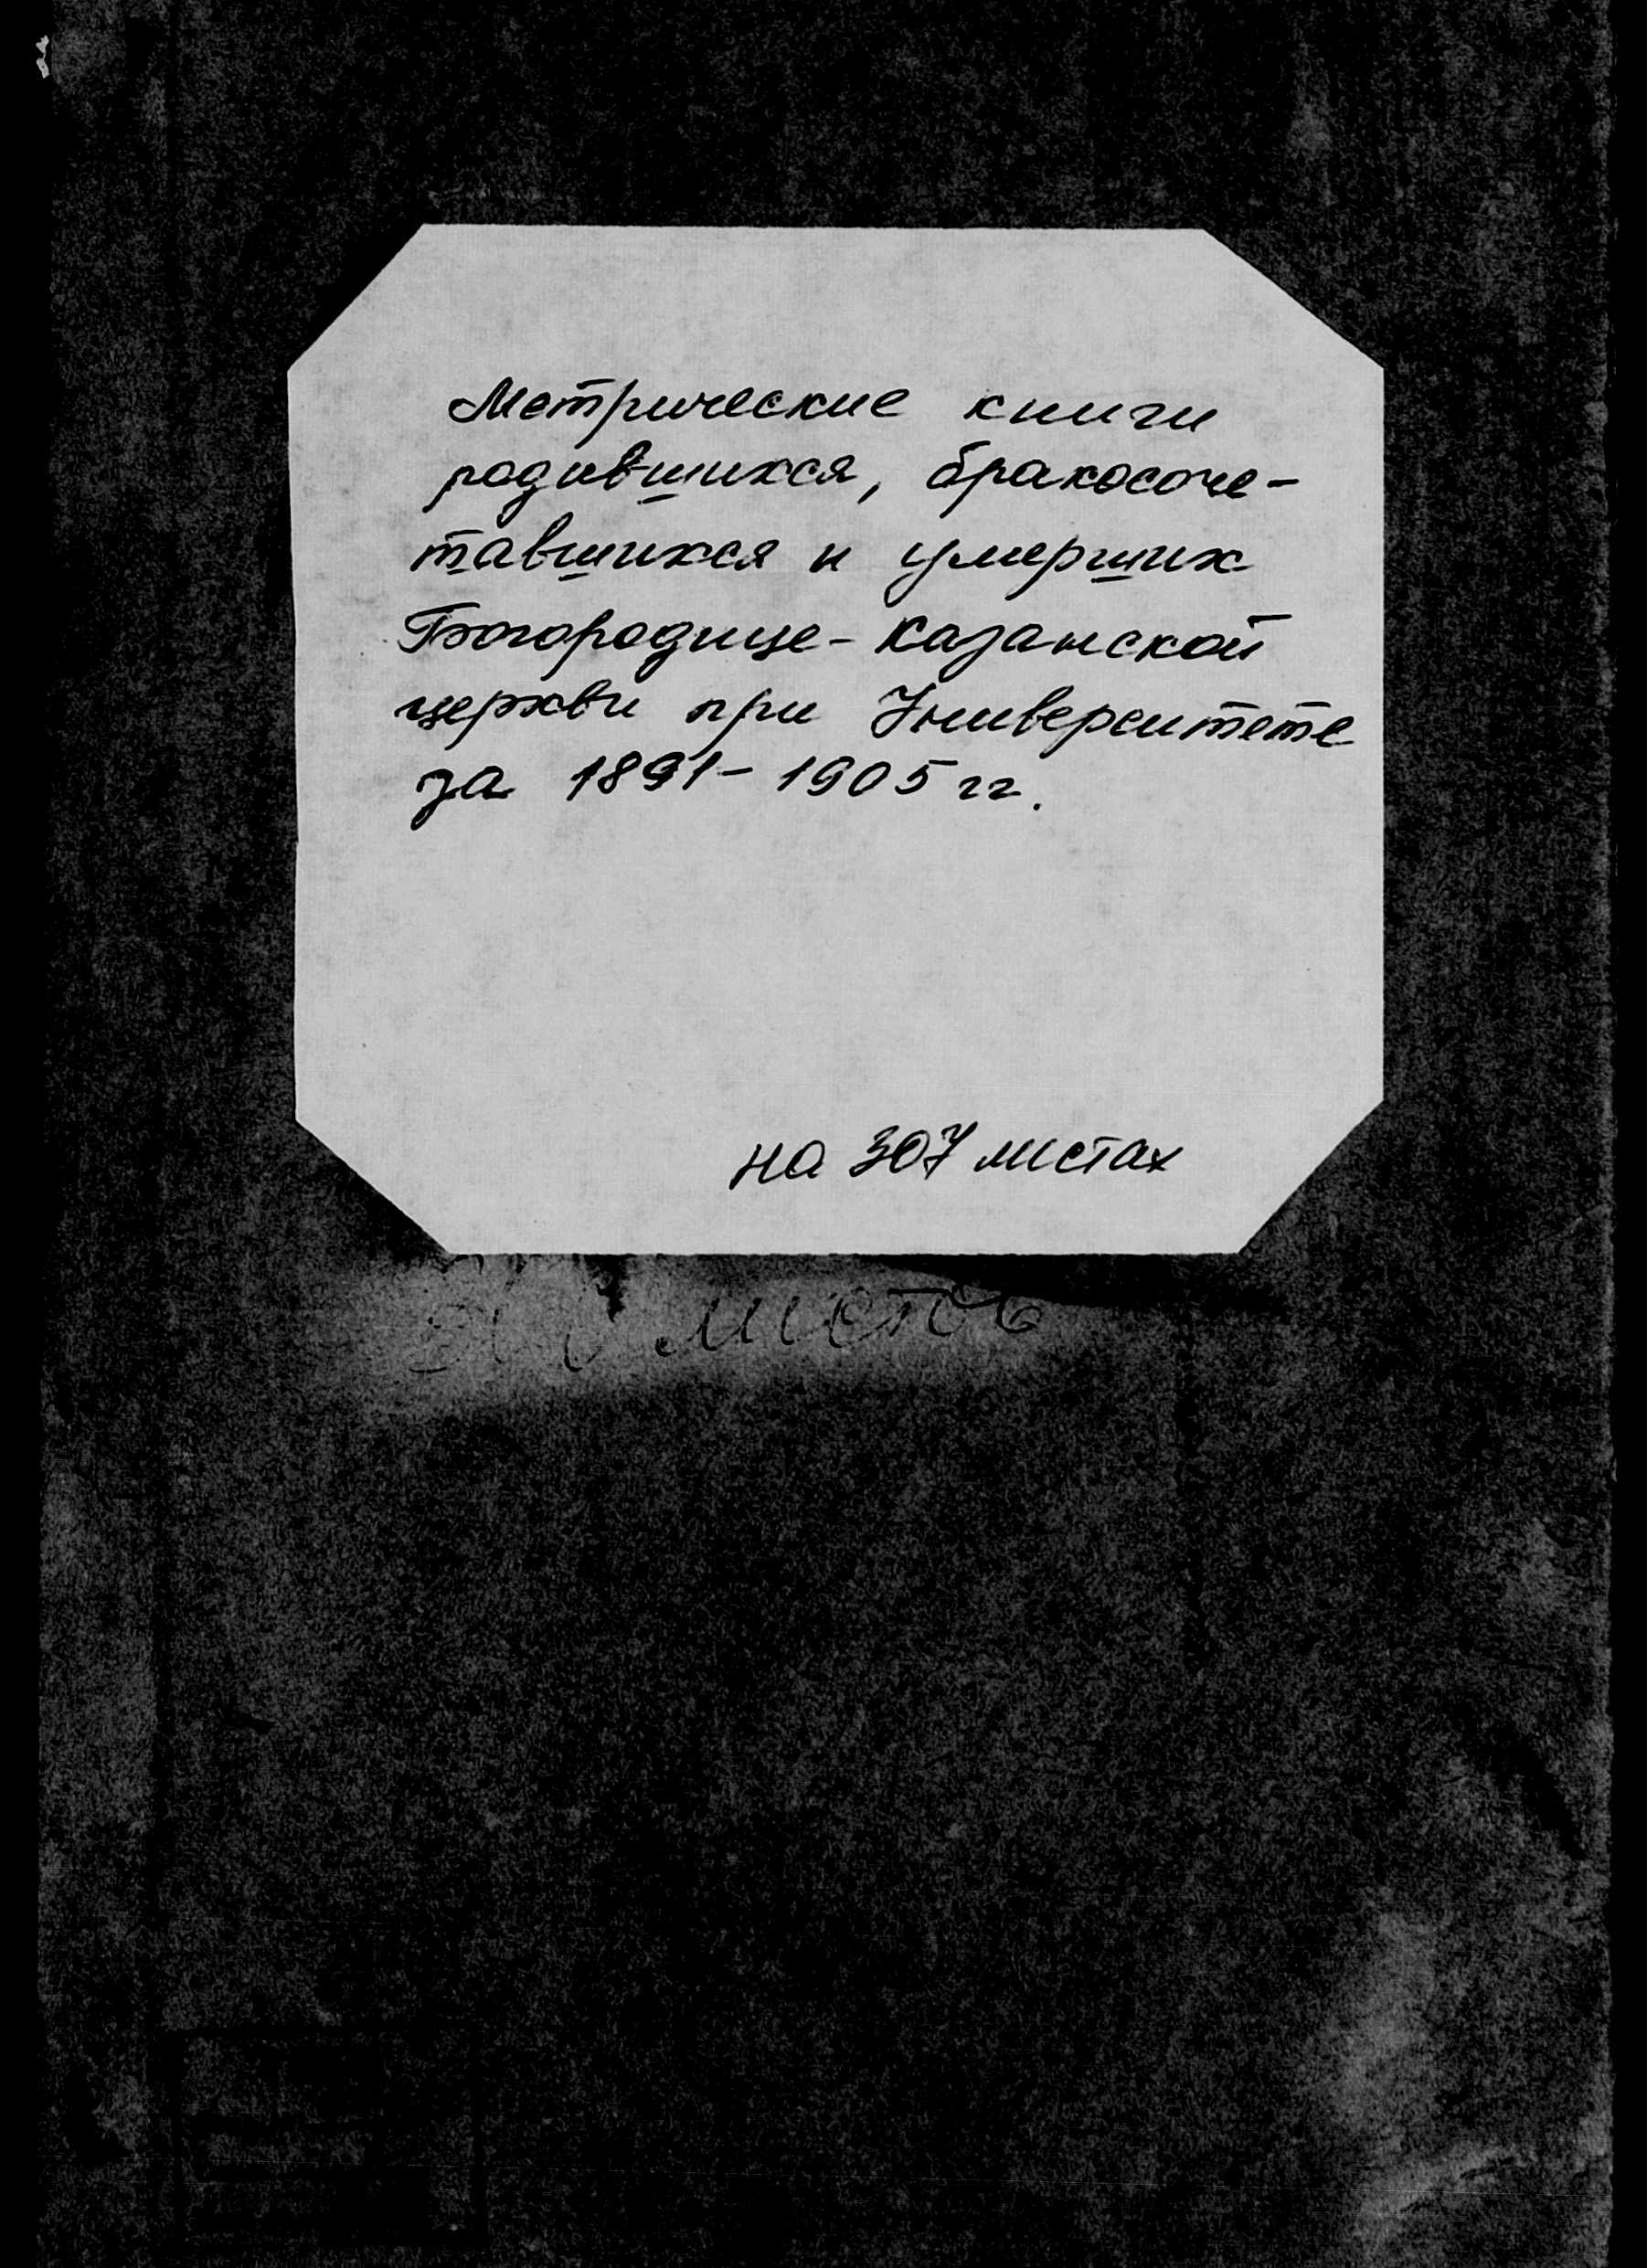 Метрические книги
родившихся, бракосоче-
тавшихся и умерших
Богородице-Казанской
церкви при Университете
за 1891-1905 гг.
на 307 листах
листов